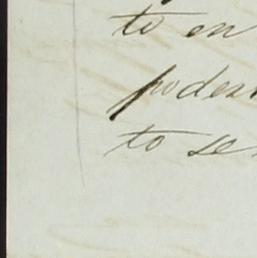 to en
poder
to se